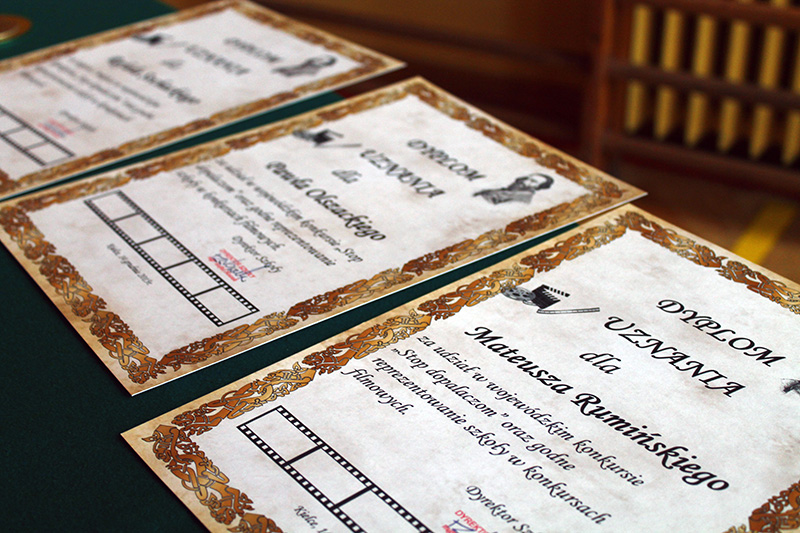 DYPLOM
UZNANIA
dla
DYPLOM
UZNANIA
dla
Pawła Olszackiego
za udział w wojewódzkim konkursie „Stop
dopalaczom” oraz godne reprezentowanie
szkoły w konkursach filmowych.
Dyrektor Szkoły
DYPLOM
UZNANIA
dla
Mateusza Rumińskiego
za udział w wojewódzkim konkursie
„Stop dopalaczom” oraz godne
reprezentowanie szkoły w konkursach
filmowych.
Dyrektor
Kielce,